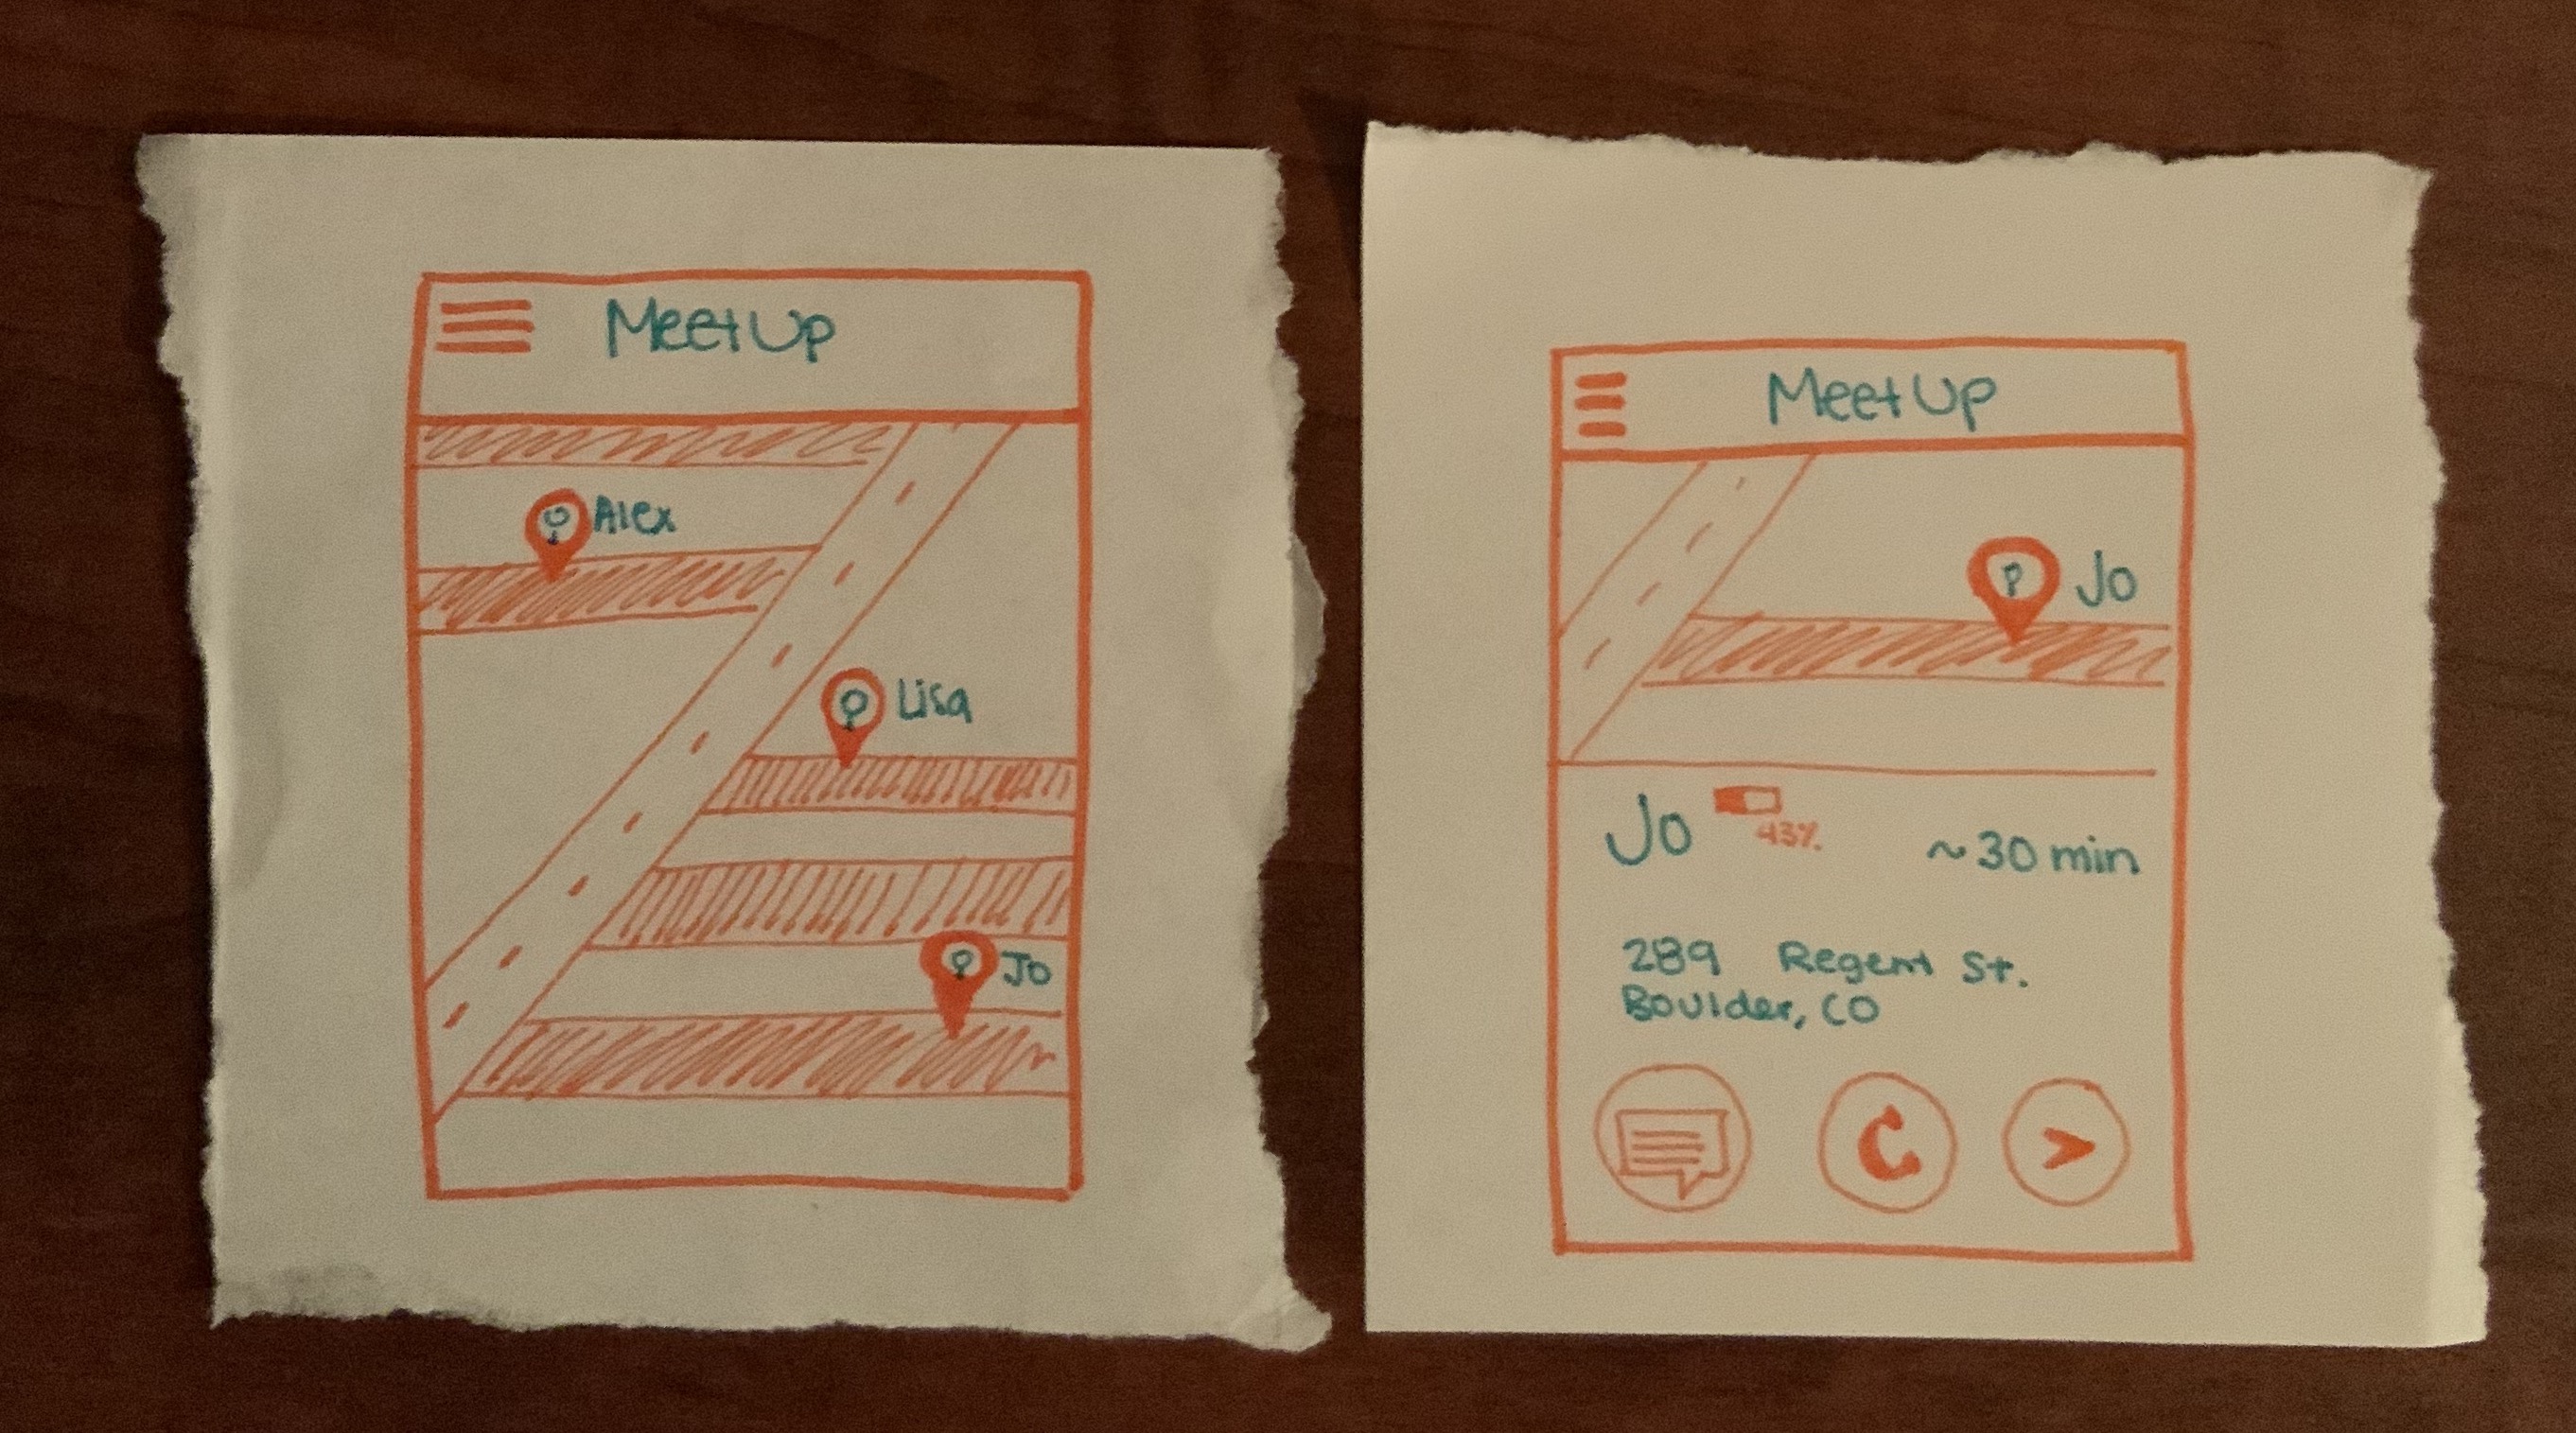 MeetUp
Alex
Lisa
Jo
MeetUp
Jo
Jo 43% ~30 min
289 Regent St.
Boulder, CO